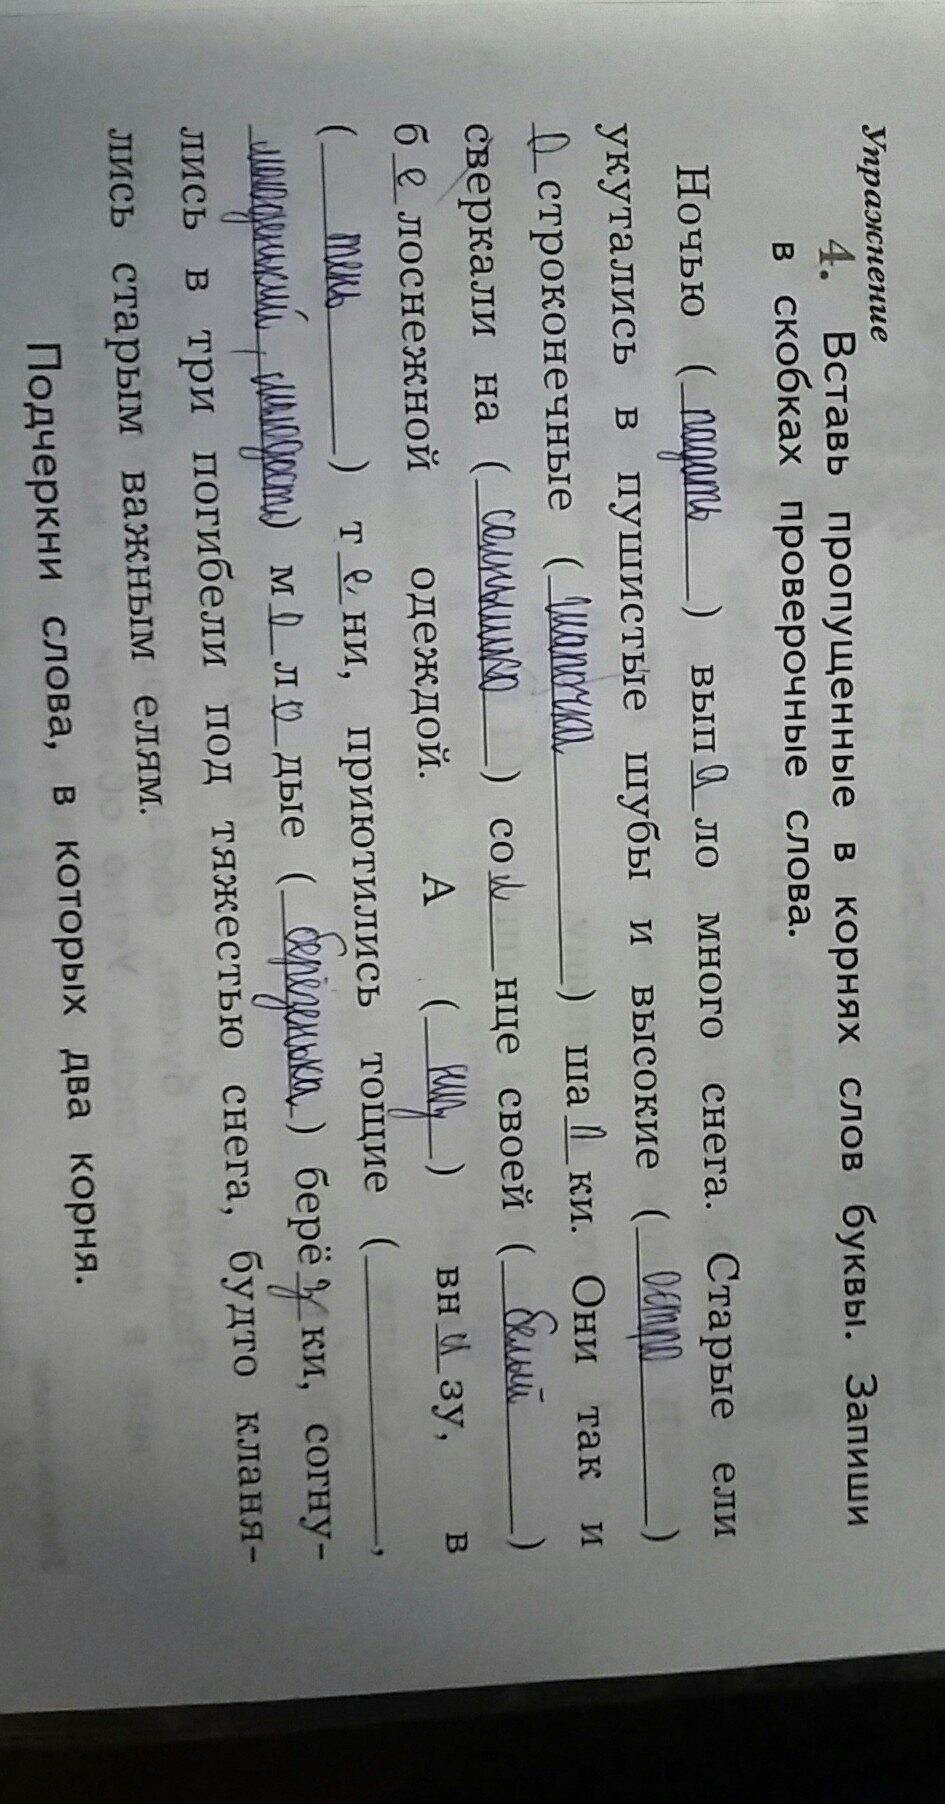 Упражнение
4. Вставь пропущенные в корнях слов буквы. Запиши
в скобках проверочные слова.
Ночью (падать) вып а ло много снега. Старые ели
укутались в пушистые шубы и высокие (остро)
о строконечные (шапочка) ша п ки. Они так и
сверкали на (солнышко) со л нце своей (белый)
б е лоснежной одеждой. А (низ) вн и зу, в
(тень) т е ни, приютились тощие ( ,
молоденький, молодость) м о л о дые (берёзонька) берё з ки, согну-
лись в три погибели под тяжестью снега, будто кланя-
лись старым важным елям.
Подчеркни слова, в которых два корня.